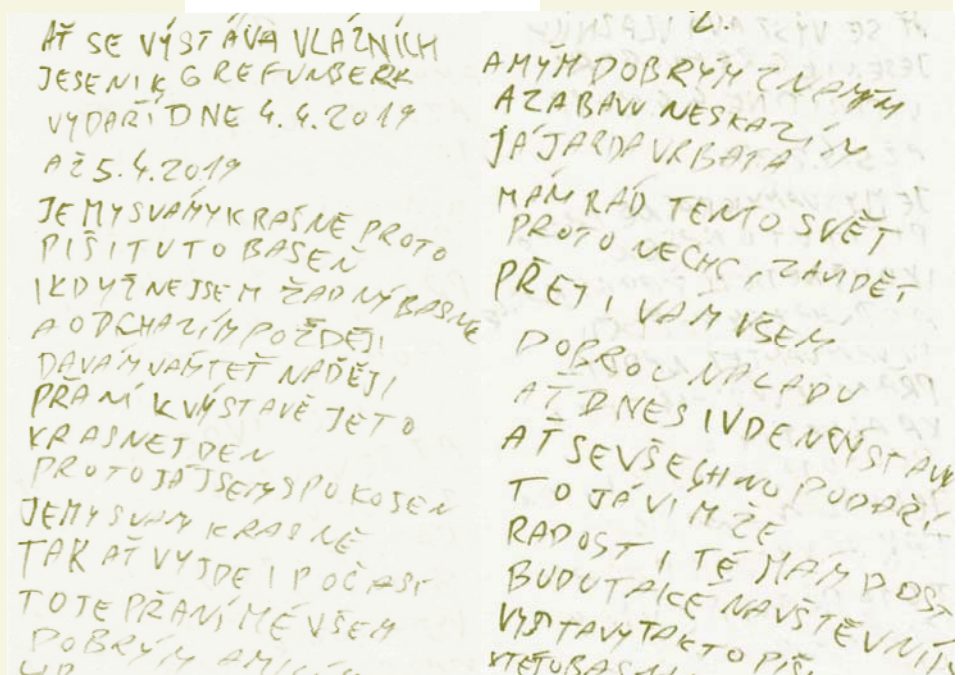 AŤ SE VÝSTÁVA VLÁZNÍCH
JESENIK GREFUNBERK
VYDAŘÍ DNE 4.4.2019
AŽ 5.4.2019
JE MY SVAMY KRAŠNĚ PROTO
PIŠI TUTO BASEŇ
IKDYŽ NEJSEM ŽADNÝ BASNE
A ODCHAZÍM POŽDĚJI
DAVAM VAM TEŤ NADĚJI
PŘANÍ K VÝSTAVĚ JE TO
KRASNEJ DEN
PROTO JÁ JSEM SPOKOJEN
JEMY SVAM KRASNĚ
TAK AŤ VYJDE I POČASI
TOTE PŘANÍ MÉ VŠEM
DOBRÝM
2.
AMÝM DOBRÝM ZNAMÝM
AZABAVU NESKAZÍM
JÁ JARDA VRBATA
MÁM RÁD TENTO SVĚT
PROTO NECHC ZAMDĚT
PŘEJI VAM VŠEM
DOBROU NALADU
AŤ DNES I VDEN VÝSTAVY
AŤ SEVŠECHNO PODAŘÍ
TO JÁ VIM ŽE
RADOST I TÉ MAM DOST
BUDU TAKÉ NAVŠTĚVNÍK
VYSTAVY TAK TO PIŠ